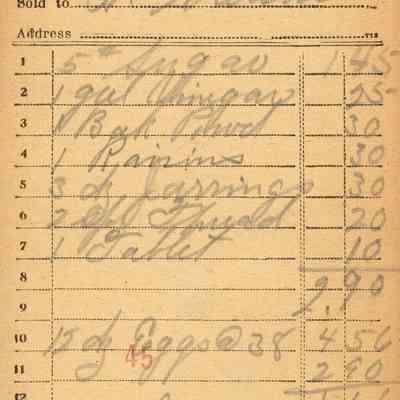 Sold to
Address
1 5 # Sugar 1 45
2 1 gal Vinegar 25
3 1 Bak Powd 30
4 1 Raisins 30
5 3 dz Jar rings 30
6 2 Thread 20
7 1 Tablet 10
8 2.90
9
10 12 dz Eggs @ 38 4 56
45
11 2 90
12